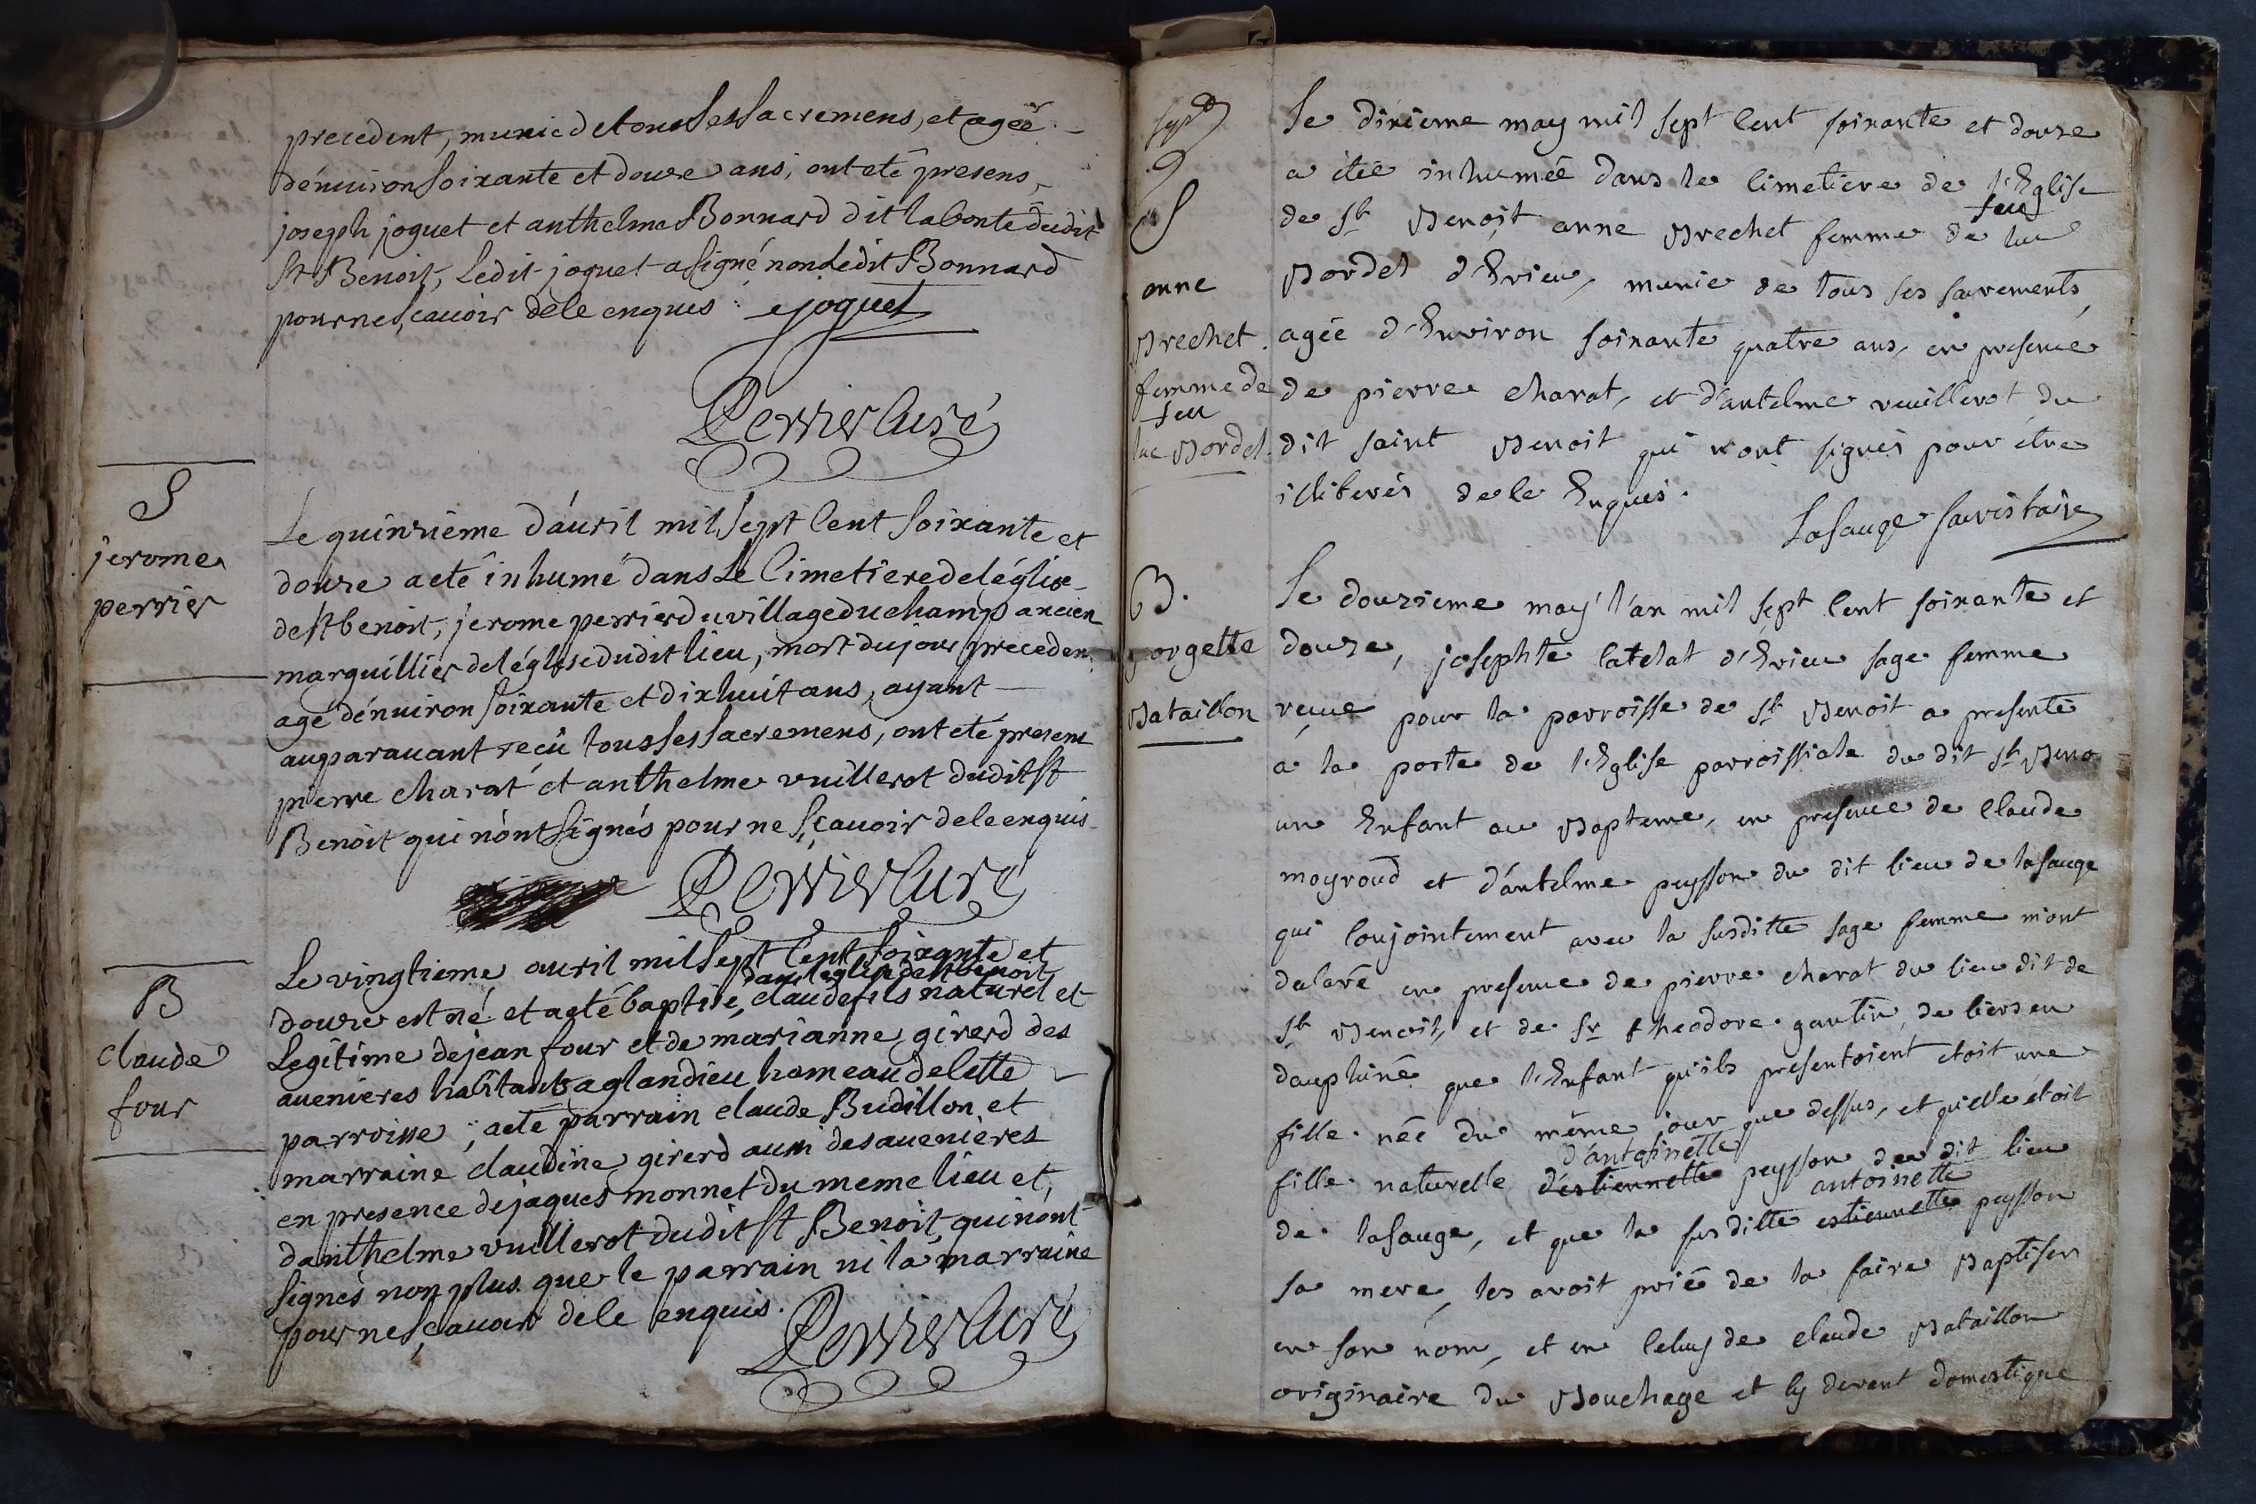 precedent, munie de tous ses sacremens, et agée
dénuiron soixante et douze ans, ont eté presens,
joseph joguet et anthelme Bonnard dit la bonté dudit
St Benoit, Ledit joguet a signé non Ledit Bonnard
pour ne sçauoir de le enquis joguet
Perrier Curé
S
jerome
perrier
Le quinzième dáuril mil sept Cent soixante et
douze a eté inhumé dans Le Cimetiere de léglise
de st benoit, jerome perrier du village du champ ancien
marguillier de léglise dudit lieu, mort du jour preceden
agé dénuiron soixante et dix huit ans, ayant
auparauant reçû tous ses sacremens, ont eté present
pierre charat et anthelme vuillerot dudit St
Benoit qui nónt signés pour ne sçauoir de le enquis
Perrier Curé
B
claude
four
Le vingtieme auril mil sept Cent soixante et
dans léglise de st benoit
douze est né et a eté baptisé, claude fils naturel et
Legitime de jean four et de marianne girerd des
auenieres habitants a glandieu hameau de Cette
parroisse; a eté parrain claude Budillon, et
marraine claudine girerd aussi des auenieres
en presence de jaques monnet du meme lieu et,
danthelme vuillerot dudit St Benoit, qui nont
signés non plus que le parrain ni la marraine
pour ne sçauoir de le enquis.
Perrier Curé
S
anne
Brechet
femme de
feu
luc Bordel
Le dixieme may mil sept Cent soixante et douze
a étée inhumée dans le Cimetiere de l'Eglise
feu
de St Benoit anne Brechet femme de luc
Bordel d'Evieu, munie de tous ses sacrements,
agée d'Environ soixante quatre ans, en presence
de pierre charat, et d'antelme vuillerot du
dit saint Benoit qui n'ont signés pour être
illiterés de le Enquis.
Lasauge sacristain
B.
gorgette
Bataillon
Le douzieme may l'an mil sept Cent soixante et
douze, josephte Catelat d'Evieu sage femme
reçue pour la parroisse de St Benoit a presenté
a la porte de l'Eglise parroissiale du dit St Beno
un Enfant au Bapteme, en presence de Claude
moyroud et d'antelme peysson du dit lieu de lasauge
qui Conjointement avec la susditte sage femme m'ont
declaré en presence de pierre charat du lieu dit de
St Benoit, et de Sr theodore gautin, de Ciers en
dauphiné que l'Enfant qu'ils presentoient etoit une
fille née du même jour que dessus, et qu'elle étoit
d'antoinette
fille naturelle d'estiennette peysson du dit lieu
antoinette
de lasauge, et que la susditte estiennette peysson
sa mere, les avoit prié de la faire Baptiser
en son nom, et en Celuy de Claude Bataillon
originaire du Bouchage et Cy devant domestique